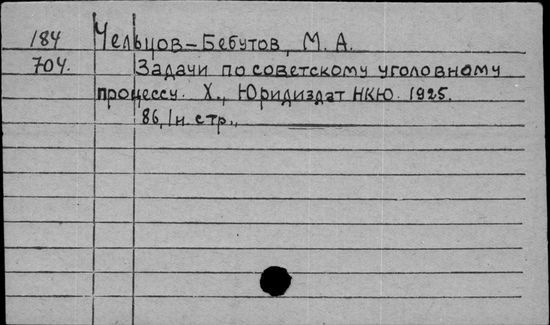 184 Чельцов-Бебутов, М. А.
704. Задачи по советскому уголовному
процессу. Х., Юридиздат НКЮ. 1925.
86, 1н. стр.,